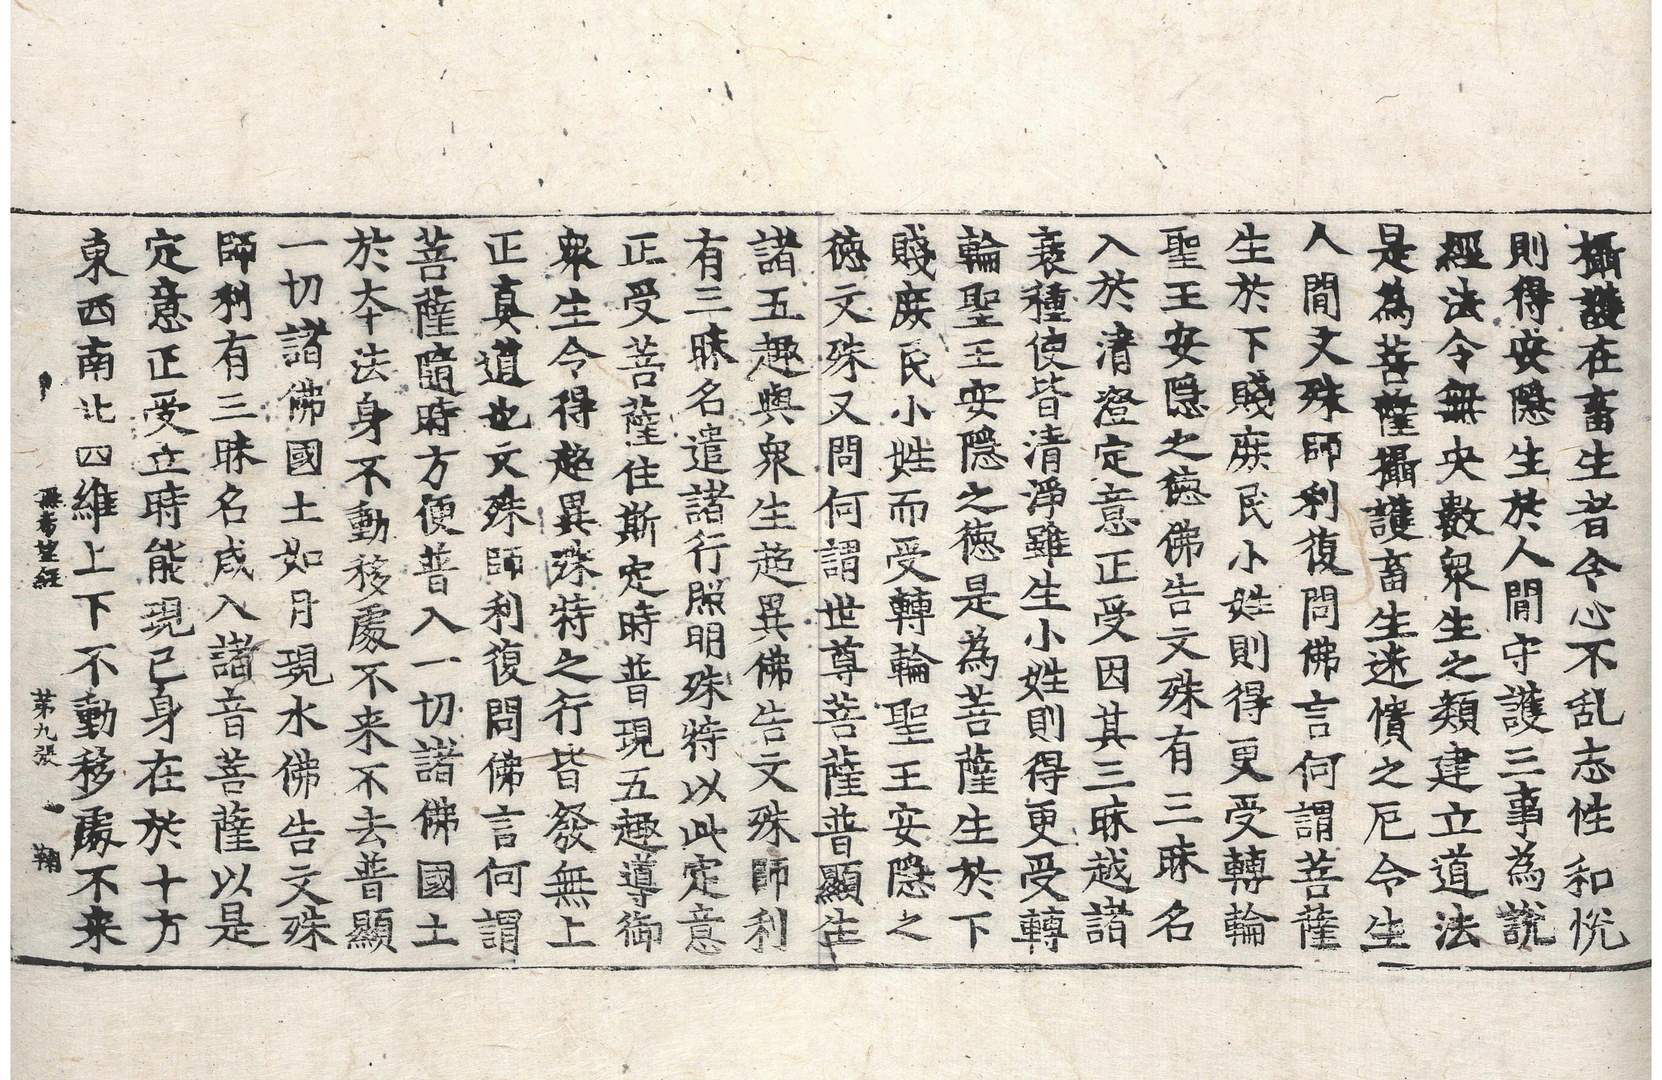 攝護在畜生者令心不乱志性和悅
則得安隱生於人間守護三事為說
經法令無央數衆生之類建立道法
是為菩薩攝護畜生迷憒之厄令生
人間文殊師利復問佛言何謂菩薩
生於下賤庻民小姓則得更受轉輪
聖王安隱之德佛告文殊有三昧名
入於清澄定意正受因其三昧越諸
衰種使皆清淨雖生小姓則得更受轉
輪聖王安隱之德是為菩薩生於下
賤庻民小姓而受轉輪聖王安隱之
德文殊又問何謂世尊菩薩普顯生
諸五趣與衆生超異佛告文殊師利
有三昧名遣諸行照明殊特以此定意
正受菩薩住斯定時普現五趣導御
衆生令得超異殊特之行皆發無上
正真道也文殊師利復問佛言何謂
菩薩隨時方便普入一切諸佛國土
於夲法身不動移處不来不去普顯
一切諸佛國土如月現水佛告文殊
師利有三昧名咸入諸音菩薩以是
定意正受立時能現己身在於十方
東西南北四維上下不動移處不来
無希望經 第九張 鞠